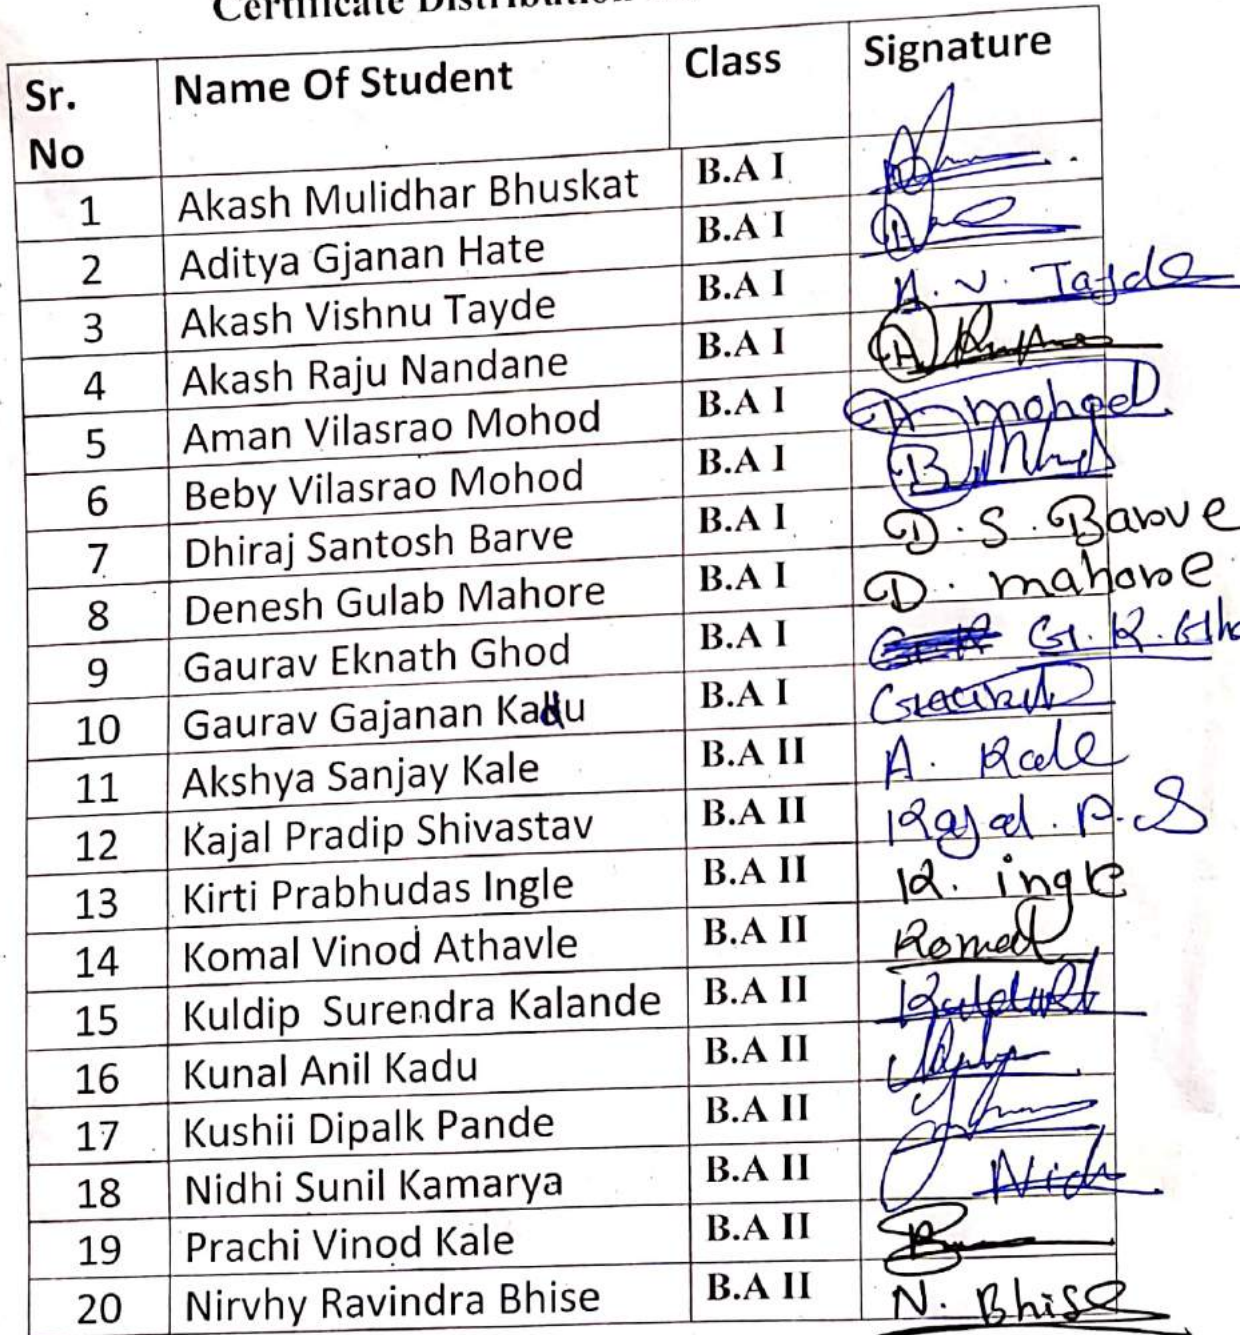 Certificate Distribution
Sr. No Name Of Student Class Signature
1 Akash Mulidhar Bhuskat B.A I
2 Aditya Gjanan Hate B.A I
3 Akash Vishnu Tayde B.A I A. V. Tayde
4 Akash Raju Nandane B.A I
5 Aman Vilasrao Mohod B.A I mohod
6 Beby Vilasrao Mohod B.A I
7 Dhiraj Santosh Barve B.A I D. S. Barve
8 Denesh Gulab Mahore B.A I D. mahore
9 Gaurav Eknath Ghod B.A I
10 Gaurav Gajanan Kadu B.A I
11 Akshya Sanjay Kale B.A II A. Kale
12 Kajal Pradip Shivastav B.A II Kajal. P. S
13 Kirti Prabhudas Ingle B.A II K. ingle
14 Komal Vinod Athavle B.A II Komal
15 Kuldip Surendra Kalande B.A II
16 Kunal Anil Kadu B.A II
17 Kushii Dipalk Pande B.A II
18 Nidhi Sunil Kamarya B.A II
19 Prachi Vinod Kale B.A II
20 Nirvhy Ravindra Bhise B.A II N. Bhise